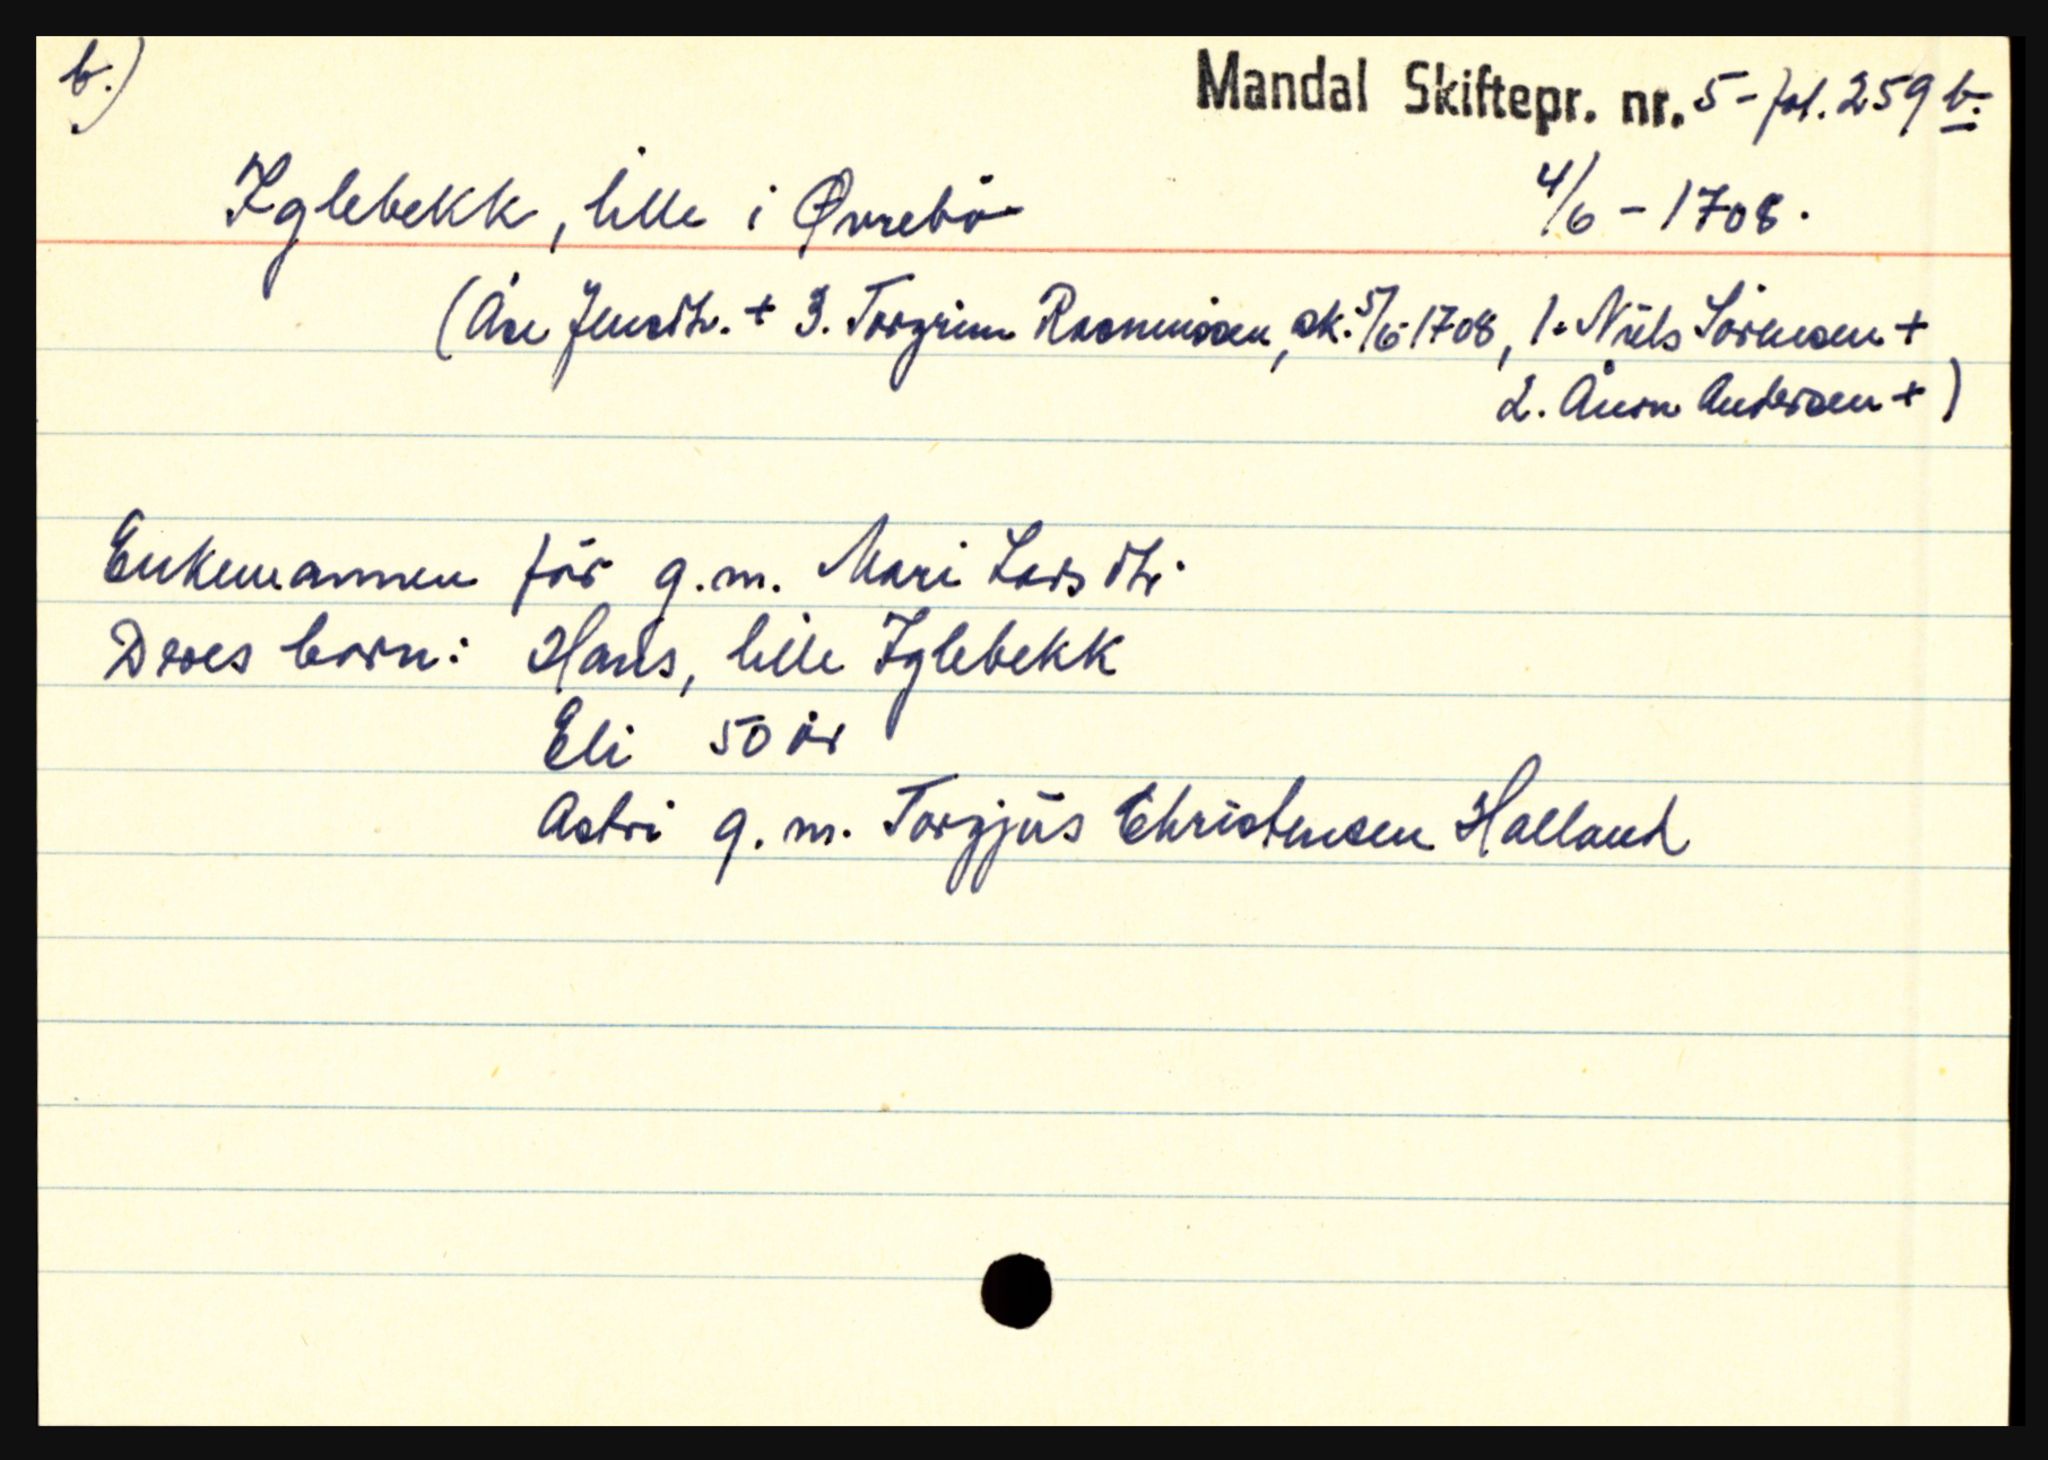 b.)
Mandal Skiftepr. nr. 5 - fol. 259 b.
Iglebekk, lille i Øvrebö 4/6 - 1708.
(Åse Jensdtr. + 3. Torgrim Rasmussen, sk. 5/6 1708, 1. Niels Sörensen +
2. Ånon Andersen +)
Enkemannen för g.m. Mari Larsdtr.
Deres born: Hans, lille Iglebekk
Eli 50 år
Astri g.m. Torgjüs Christensen Halland